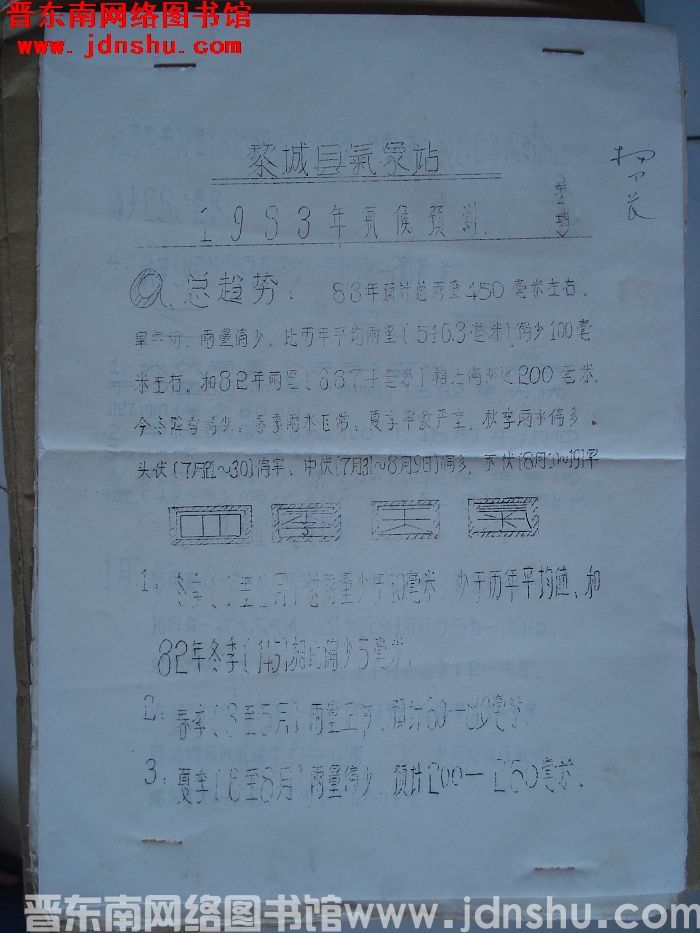 晋东南网络图书馆
www.jdnshu.com
黎城县氣象站
1983年氣候預測
总趋势： 83年预计总雨量450毫米左右。
旱年份，雨量偏少，比历年平均雨量(546.3毫米)偏少100毫
米左右，和82年雨量( 毫米)相比偏少近200毫米。
今冬降雪偏少，春季雨水正常，夏季旱象严重，秋季雨水偏多。
头伏(7月21～30)偏旱，中伏(7月31～8月9日)偏多，末伏(8月10～19)旱
四季天氣
1：冬季( 至2月)总雨量少于10毫米，少于历年平均值，和
82年冬季(14.5)相比偏少5毫米。
2：春季(3至5月)雨量正常，预计60—80毫米
3：夏季(6至8月)雨量偏少，预计200—250毫米。
晋东南网络图书馆www.jdnshu.com